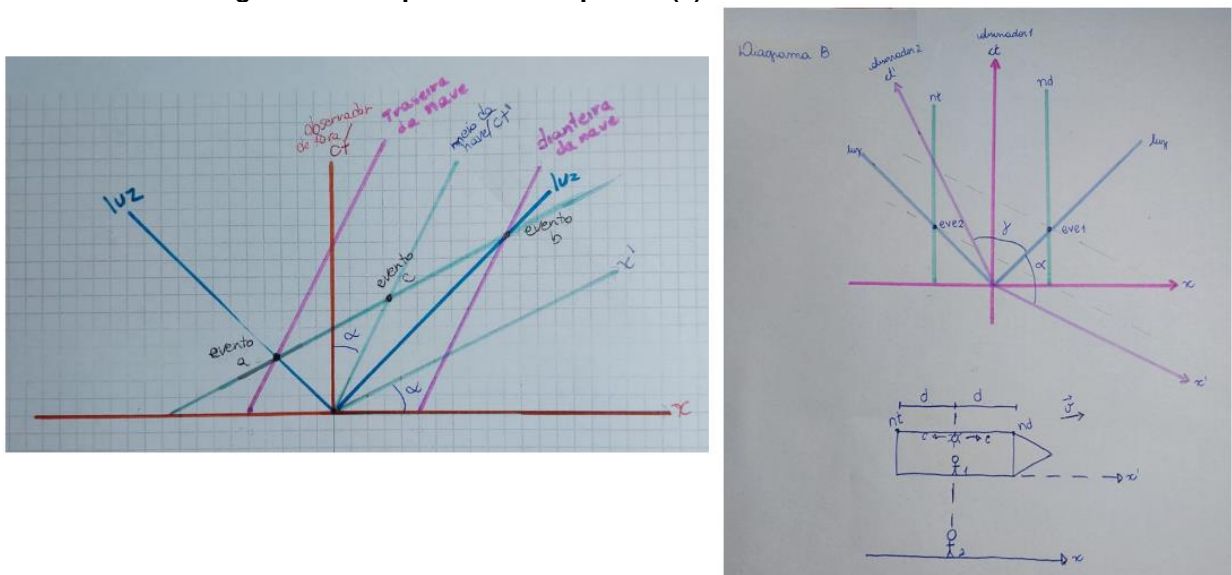 Observador
de fora/
ct
Traseira
da nave
meio da
nave/ct'
dianteira
da nave
luz
luz
evento
a
evento
c
evento
b
α
α
x'
x
Diagrama B
observador 1
ct
observador 2
ct'
nt
nd
luz
luz
eve2
eve1
γ
α
x
x'
d
d
v
nt
nd
c
c
1
x'
2
x